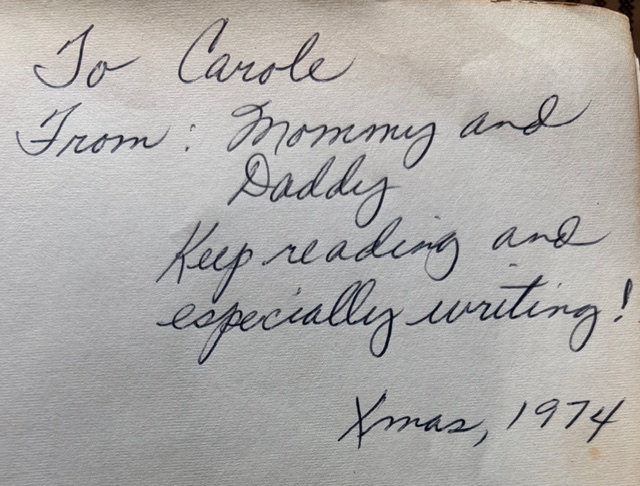 To Carole
From: Mommy and
Daddy
Keep reading and
especially writing!
Xmas, 1974